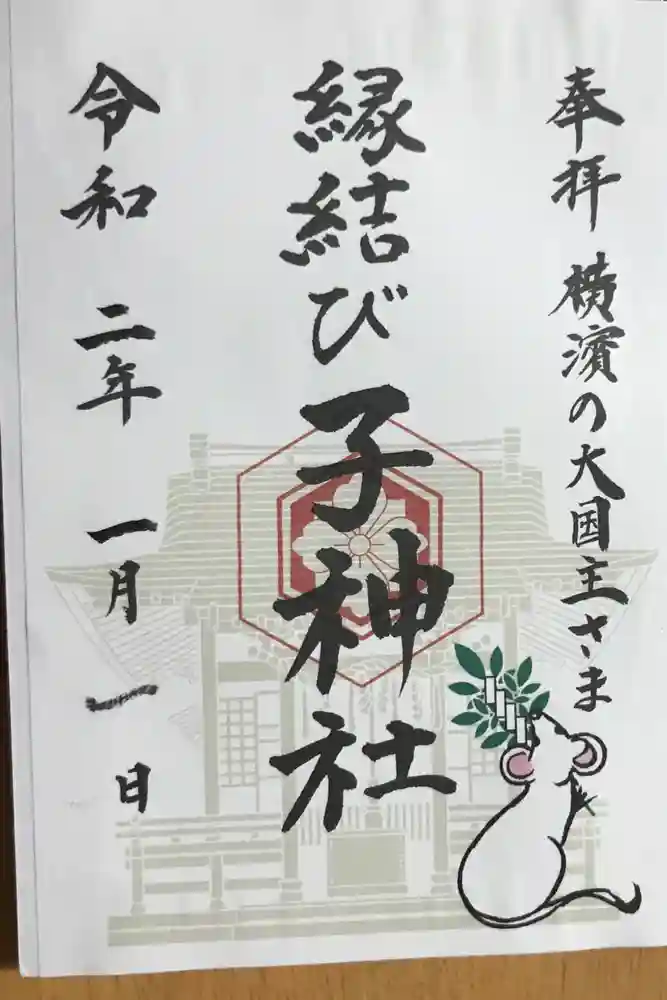 奉拝 横濱の大国主さま
縁結び子神社
令和二年一月一日